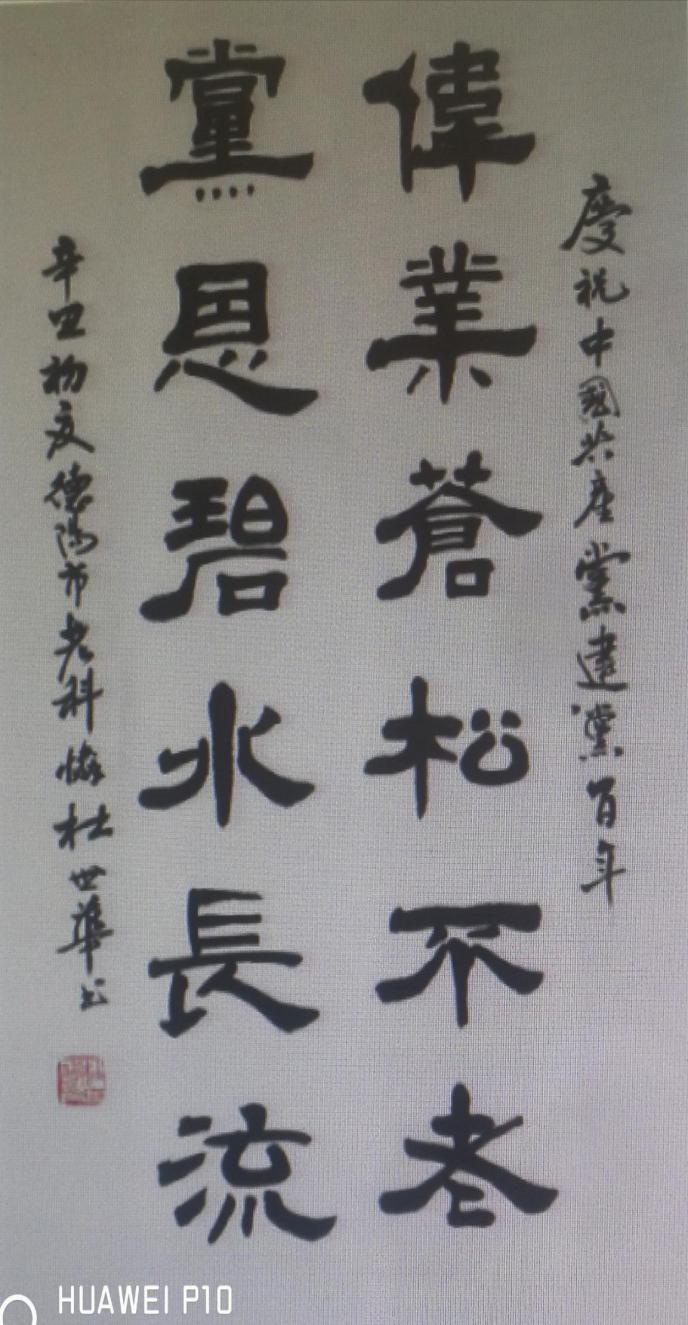 慶祝中國共產黨建黨百年
偉業蒼松不老
黨恩碧水長流
辛丑初夏德陽市老科協杜世華书
HUAWEI P10